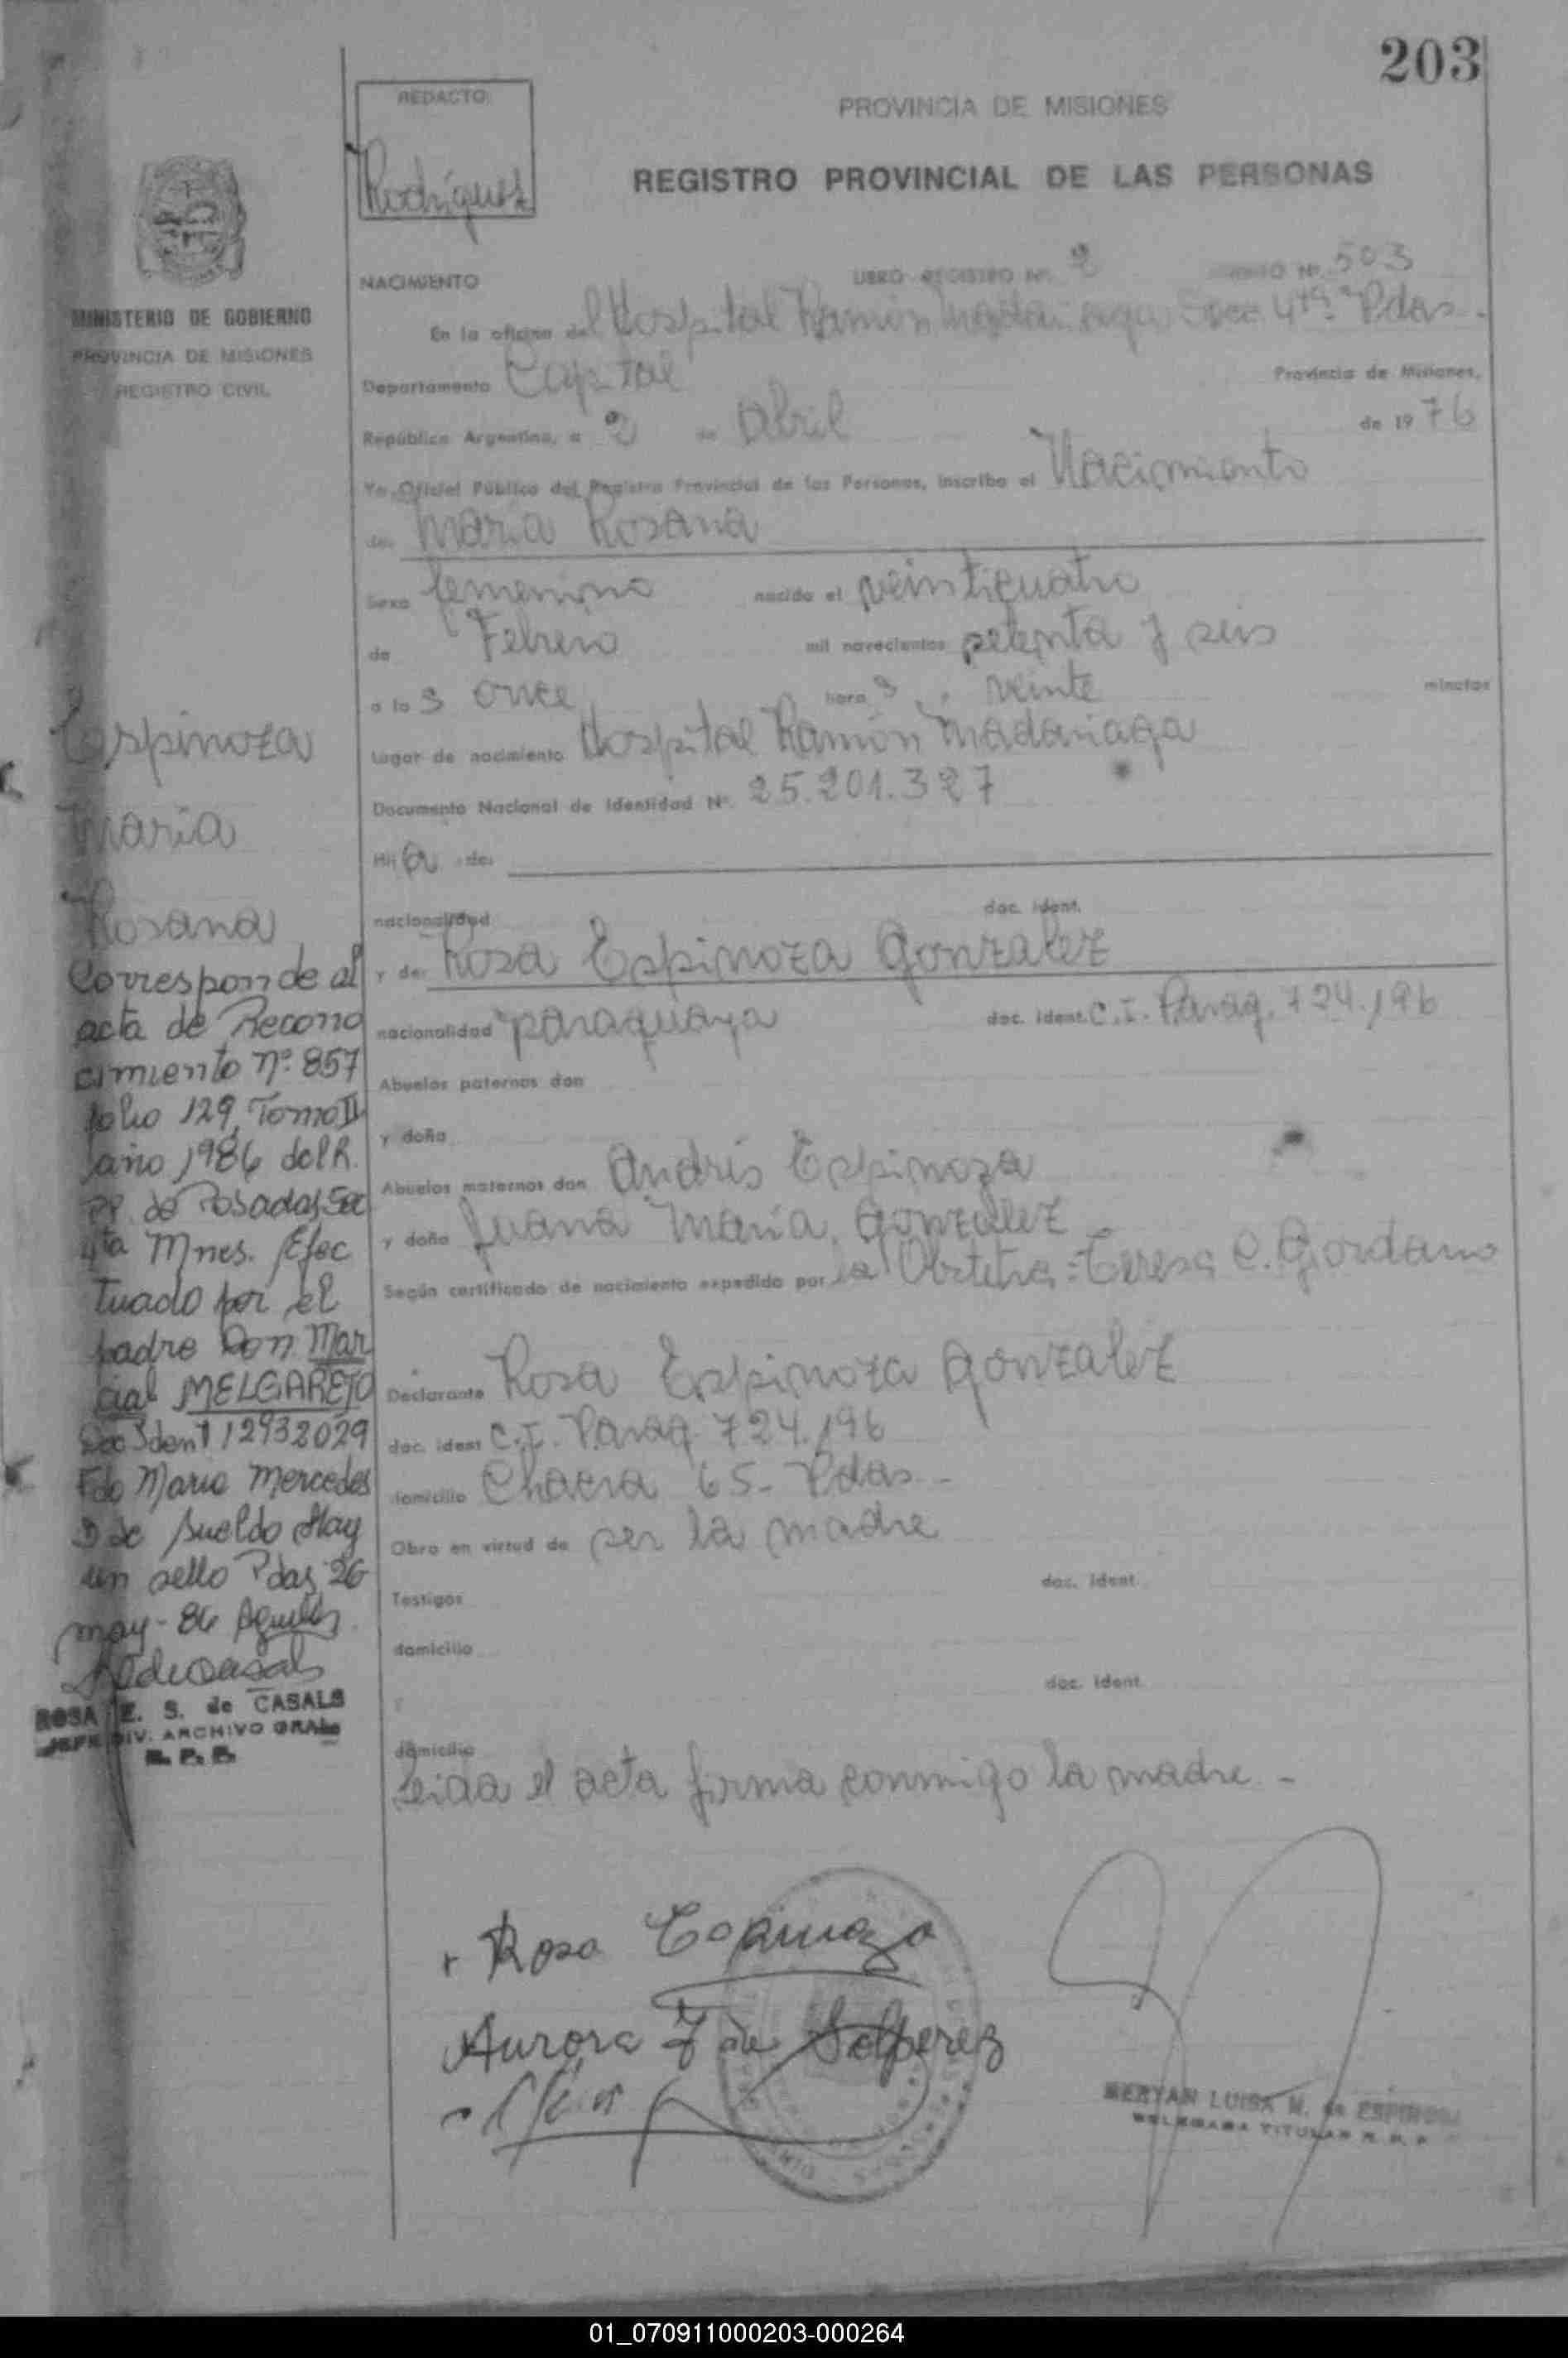 203
REDACTO:
Rodriguez
PROVINCIA DE MISIONES
REGISTRO PROVINCIAL DE LAS PERSONAS
MINISTERIO DE GOBIERNO
PROVINCIA DE MISIONES
REGISTRO CIVIL
NACIMIENTO LIBRO REGISTRO Nº. 2 Nº. 503
En la oficina del Hospital Ramón Madariaga Secc 4ta. Pdas.
Departamento Capital Provincia de Misiones,
República Argentina, a 2 de Abril de 1976
Yo, Oficial Público del Registro Provincial de las Personas, inscribo el Nacimiento
de: Maria Rosana
Sexo femenino nacido el veinticuatro
de Febrero mil novecientos setenta y seis
a las once horas veinte minutos
Lugar de nacimiento Hospital Ramón Madariaga
Documento Nacional de Identidad Nº. 25.201.327
Hija de:
nacionalidad doc. ident.
y de: Rosa Espinoza Gonzalez
nacionalidad paraguaya doc. ident. C.I. Parag. 724.196
Abuelos paternos don
y doña
Abuelos maternos don Andrés Espinoza
y doña Juana Maria Gonzalez
Según certificado de nacimiento expedido por la Obstetra: Teresa C. Giordano
Declarante Rosa Espinoza Gonzalez
doc. ident C.I. Parag. 724.196
domicilio Chacra 65- Pdas-
Obra en virtud de ser la madre
Testigos doc. ident.
domicilio
doc. ident.
domicilio
Leida el acta firma conmigo la madre -
Espinoza
Maria
Rosana
Corresponde al
acta de Recono
cimiento Nº. 857
folio 129, Tomo II
año 1986 del R.
PP. de Posadas Sec
4ta Mnes. Efec
tuado por el
padre Don Mar
cial MELGAREJO
Doc Ident 12932029
Fdo Maria Mercedes
D de Sueldo Hay
un sello Pdas 26
may-86
ROSA E. S. de CASALS
JEFE DIV. ARCHIVO GRAL
R. P. P.
Rosa Espinoza
Aurora F de
MERYAN LUISA M. de ESPINOSA
DELEGADA TITULAR R. P. P.
01_070911000203-000264